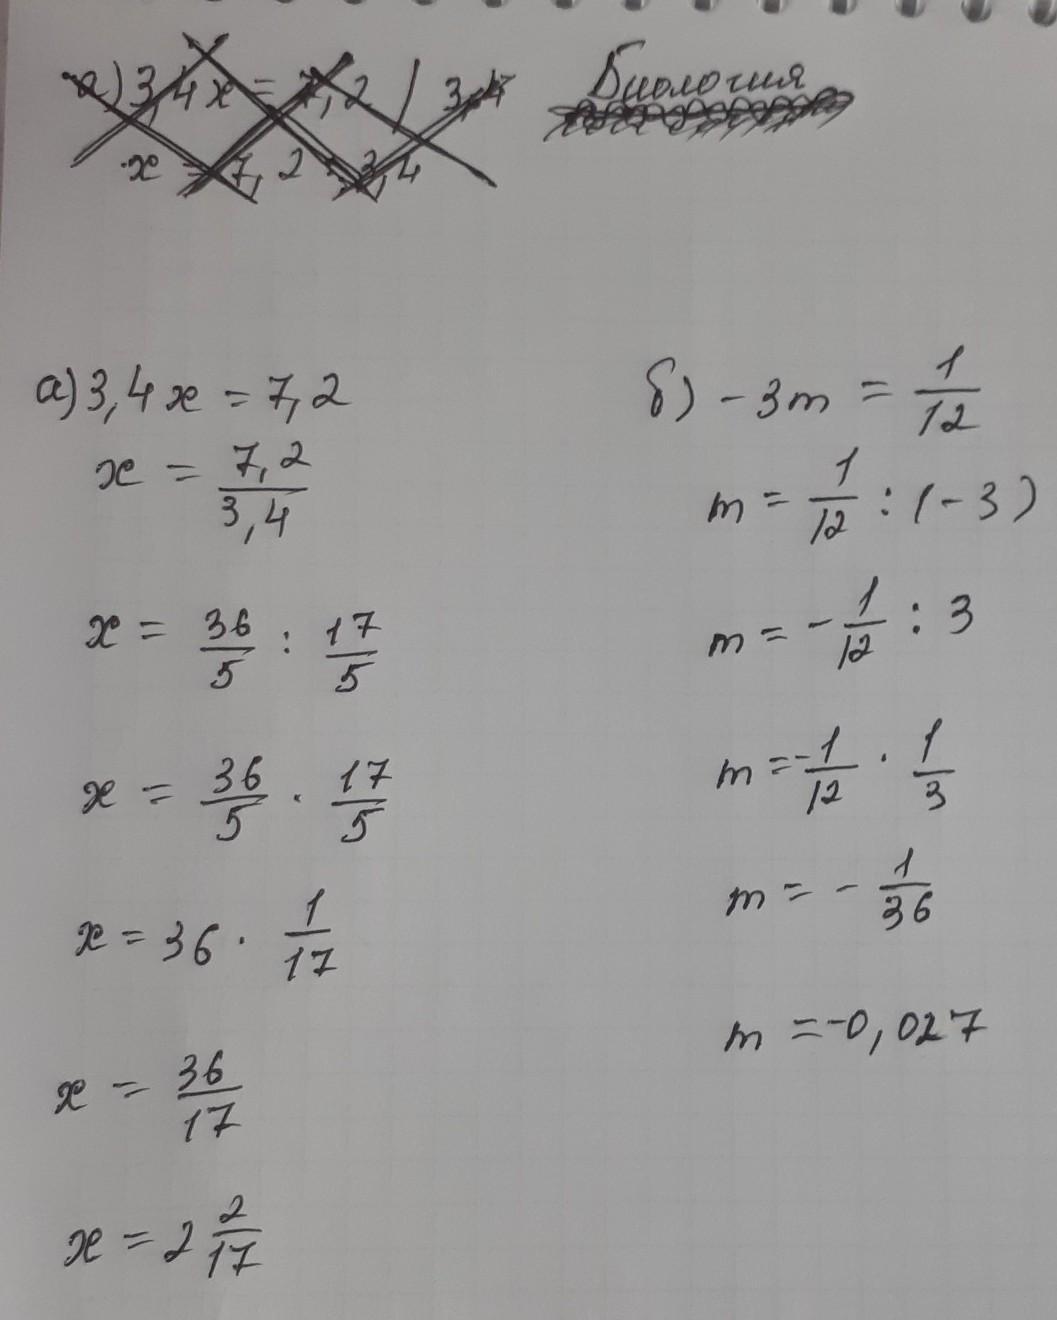 а) 3,4x = 7,2 | 3,4
x = 7,2 : 3,4
Биология
а) 3,4x = 7,2
x = 7,2/3,4
x = 36/5 : 17/5
x = 36/5 · 17/5
x = 36 · 1/17
x = 36/17
x = 2 2/17
б) -3m = 1/12
m = 1/12 : (-3)
m = -1/12 : 3
m = -1/12 · 1/3
m = -1/36
m = -0,027